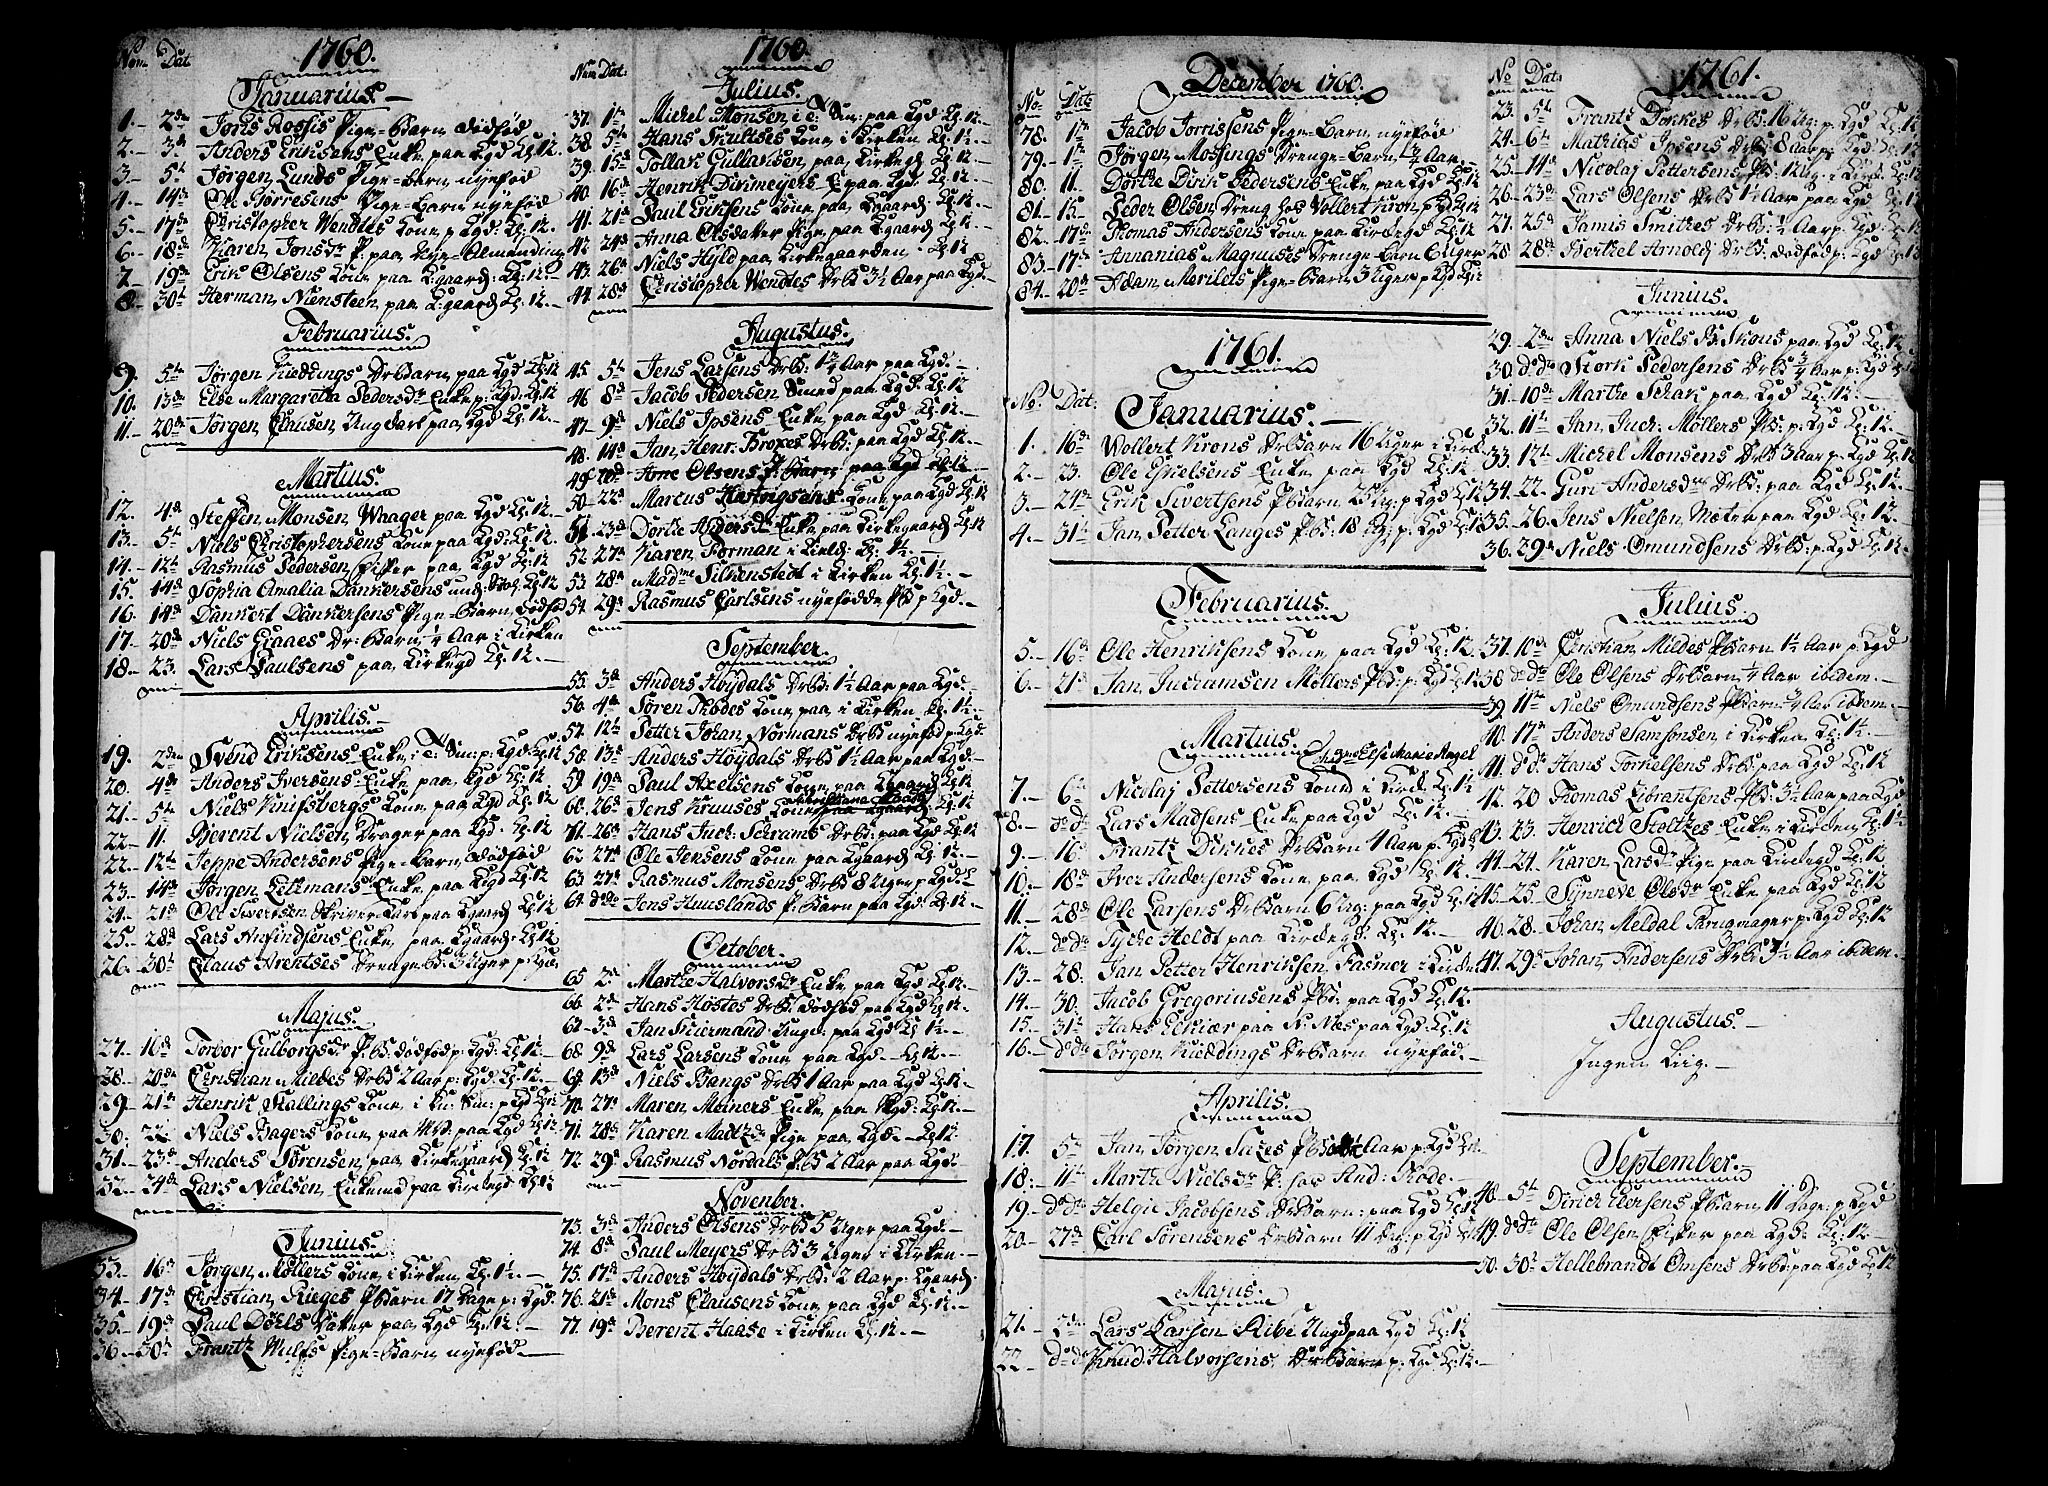 1760.
Num. Dat.
Januarius.
1. 2den Joris Rossis Pige-Barn dödföd
2. 3de Anders Eriksens Enke paa Kgd Kl. 12.
3. 5te Jørgen Lunds Pige-Barn nyeföd
4. 14de Ole Pjörresens Pige-Barn nyeföd
5. 17de Christopher Wendtes Kone p Kgd: Kl: 12.
6. 18de Karen Jonsdr P. paa Nye-Almending
7. 19de Erik Olsens Kone paa Kgaard: Kl: 12.
8. 30te Herman Niensteen paa Kgaard Kl: 12.
Februarius.
9. 5te Jörgen Kieddings DrBarn paa Kgd Kl: 12
10. 13de Else Margaretha Pedersdr Enke p: Kgd: Kl: 12
11. 20de Jörgen Clausen Ung Karl paa Kgd Kl: 12
Martius.
12. 4de Steffen Monsen Waager paa Kgd Kl: 12.
13. 5te Niels Christophersens Kone paa Kgd: Kl: 12.
14. 12te Rasmus Pedersen Fisker paa Kgd Kl: 12
15. 14de Sophia Amalia Dankersens Kl: 12
16. 14de Dankert Dankersens Pige-Barn dödföd
17. 20de Niels Graaes Dr: Barn 1/4 Aar i Kirken
18. 23. Lars Paulsens paa Kirkegd Kl: 12.
Aprilis.
19. 2den Svend Eriksens Enke p: Kgd: Kl: 12
20. 4de Anders Iversens Enke paa Kgd Kl: 12
21. 5te Niels Knifsbergs Kone paa Kgd Kl: 12
22. 11. Berent Nielsen Drager paa Kgd. Kl: 12
22. 12te Jeppe Andersens Pige-Barn dödföd
23. 14de Jörgen Letzmans Enke paa Kgd Kl: 12
24. 21de Ole Sivertsen Skriver-Karl paa Kgaard Kl: 12
25. 28de Lars Anfindsens Enke paa Kgaard Kl: 12
26. 30te Claus Arentses Drenge Bd: 3 Uger p: Kgd.
Majus.
27. 16de Torbor Gulborgsdr PB: dödföd p: Kgd: Kl: 12.
38. 20de Christian Mildes DrBd 2 Aar p: Kgd: Kl: 12.
29. 21de Henrik Stallings Kone p Kgd Kl: 12
30. 22. Niels Bagers Kone paa Kgd Kl: 12.
31. 23de Anders Sörensen paa Kirkegaard Kl: 12
32. 24de Lars Nielsen Enkemd paa Kirkegd Kl: 12
Junius.
33. 16de Jørgen Möllers Kone i Kirken Kl: 1½.
34. 17de Christian Rieges PBarn 17 Dage p: Kgd.
35. 19de Paul Döels Væver paa Kgd Kl: 12.
36. 30te Frantz Wulfs Pige-Barn nyeföd.
1760.
Num. Dat:
Julius.
37. 1te Michel Monsen paa Kgd Kl: 12.
38. 5te Hans Skultses Kone i Kirken Kl: 1½.
39. 15de Tollak Gullaksen paa Kirkegd Kl: 12.
40. 16de Henrik Dirimeyers E paa Kgd. Kl: 12.
41. 21de Paul Eriksens Kone paa Kgaard Kl: 12.
42. 24de Anna Olsdatter Pige paa Kgaard Kl: 12.
43. 26de Niels Hyld paa Kirkegaarden Kl: 12
44. 28de Christopher Wendtes DrBd 3½ Aar paa Kgd.
Augustus.
45. 5te Jens Larsens DrBd: 1¾ Aar paa Kgd.
46. 8de Jacob Pedersen Smed paa Kgd: Kl: 12
47. 9de Niels Ipsens Enke paa Kgd: Kl: 12.
48. 14de Jan Henr: Broxes DrBd: paa Kgd Kl: 12.
49. 20de Arne Olsens P: Barn paa Kgd Kl: 12.
50. 22de Marcus Hartvigsens Kone paa Kgd Kl: 12
51. 23de Dorthe Andersdr Enke paa Kirkegaard Kl: 12
52. 27de Karen Forman i Kirk: Kl: 1½.
53. 28de Madme Silkenstedt i Kirken Kl: 1½.
54. 29de Rasmus Carlsens nyefödde PBd p Kgd.
September.
55. 3de Anders Höydals DrBd: 1½ Aar paa Kgd.
56. 4de Sören Thodes Kone paa i Kirken Kl: 1½.
57. 12te Petter Johan Normans DrBd nyeföd p: Kgd
58. 13de Anders Höydals DrBd 1½ Aar paa Kgd.
59. 19de Paul Axelsens Kone paa Kgaard Kl: 12
60. 26de Jens Kruuses Kone Kl: 12
71. 26de Hans Juch: Schrams DrBd: paa Kgd Kl: 12
62. 27de Ole Jensens Kone paa Kgaard Kl: 12.
63. 27de Rasmus Monsens DrBd 8 Uger p: Kgd.
64. dodo Jens Huuslands P: Barn paa Kgd: Kl: 12.
October.
65. 2de Marthe Halvorsdr Enke paa Kgd Kl: 12.
66. 2de Hans Höstes DrBd: dödföd paa Kgd Kl: 12
63. 3de Jan Stiermand Unge: paa Kgd Kl: 1½.
68. 9de Lars Larsens Kone paa Kgd. Kl: 12.
69. 13de Niels Bangs DrBd 1 Aar paa Kgd Kl: 12.
70. 27de Maren Meiners Enke paa Kgd: Kl: 12.
71. 28de Karen Madtzdr Pige paa Kgd. Kl: 12.
72. 29de Rasmus Nordals P: Bd 2 Aar paa Kgd.
November.
73. 3de Anders Olsens DrBd 5 Uger paa Kgd.
74. 8de Paul Meyers DrBd 3 Uger i Kirken.
75. 17de Anders Höydals DrBd: 2 Aar p: Kgaard.
76. 21de Mons Clausens Kone paa Kgd Kl: 12.
77. 19de Berent Haase i Kirken Kl: 12.
No: Dat:
December 1760.
78. 1te Jacob Jorrissens Pige-Barn nyeföd
79. 1te Jörgen Mossings Drenge-Barn 1¾ Aar.
80. 11. Dorthe Dirik Pedersens Enke paa Kgd Kl: 12
81. 15. Peder Olsen Dreng hos Vollert Kron p Kgd Kl: 12
82. 17de Thomas Andersens Kone paa Kirkegd Kl: 12
83. 17de Annanias Magnuses Drenge-Barn 6 Uger
84. 20de Adam Merilets Pige-Barn 3 Uger p Kgd Kl: 12
1761.
No. Dat:
Januarius.
1. 16de Wollert Krons DrBarn 16 Uger i Kirk.
2. 23. Ole Enke paa Kgd Kl: 12
3. 24de Erik Sivertsens PBarn 25 Ug: p Kgd Kl: 12
4. 31te Jan Petter Langes PBd: 18 Ug: p: Kgd Kl: 12
Februarius.
5. 16de Ole Henriksens Kone paa Kgd Kl: 12.
6. 21de Jan Juchamsen Möllers PBd: p: Kgd Kl: 12
Martius.
Else Marie Angel
7. 6te Nicolaj Pettersens Kone i Kirk Kl: 12
8. dodo Lars Madsens Enke paa Kgd Kl: 12.
9. 16. Frantz Dirkes DrBarn 4 Aar p: Kgd
10. 18de Iver Andersens Kone paa Kgd Kl: 12.
11. 28de Ole Larsens DrBarn 6 Ug: paa Kgd Kl: 12
12. dodo Tycke Heldt paa Kirkegd: Kl: 12.
13. 28. Jan Petter Henriksen Fasmer i Kirk
14. 30. Jacob Gregoriusens PBd: paa Kgd Kl: 12.
15. 31te Hans Elkiær paa N: Næs paa Kgd: Kl: 12
16. dodo Jörgen Kieddings DrBarn nyeföd.
Aprilis.
17. 5te Jan Jörgen Sazes PBd Aar p: Kgd Kl: 12
18. 11te Marthe Nielsdr P: hos And: Rode.
19. dodo Helgie Jacobsens DrBarn: paa Kgd Kl: 12
20. 27de Carl Sörensens DrBarn 11 Ug: p: Kgd Kl: 12
Majus.
21. 2de Lars Larsen Ribe Ungd paa Kgd Kl: 12
22. dodo Knud Halvorsens DrBarn p: Kgd Kl: 12.
1761.
No Dat:
23. 5te Frantz Dirkes DrBd: 16 Ug: p. Kgd Kl: 12
24. 6te Mathias Ipsens DrBd 8 Aar p: Kgd Kl: 12.
25. 14de Nicolaj Pettersens PBd: 12 Ug: i Kirk Kl: 12
26. 23de Lars Olsens DrBd 1½ Aar paa Kgd Kl: 12
27. 25de Jamis Smithes DrBd: ½ Aar p: Kgd: Kl: 12
28. 28de Berthel Arnold DrBd: dödföd p: Kgd Kl: 12
Junius.
29. 2den Anna Niels Skous paa Kgd Kl: 12
30. dodo Stork Pedersens DrBd ¾ Aar p: Kgd Kl: 12
31. 10de Marthe Schak paa Kgd Kl: 12.
32. 11te Jan Juch: Möllers PBd: p: Kgd Kl: 12
33. 12te Michel Monsens DrBd 3 Aar p: Kgd Kl: 12
34. 22. Guri Andersdrs DrBd: paa Kgd Kl: 12.
35. 26. Jens Nielsen Mæter paa Kgd Kl: 12.
36. 29de Niels Omundsens DrBd: p: Kgd Kl: 12.
Julius.
37. 10de Christian Mildes PBarn 1½ Aar p: Kgd
38 dodo Ole Olsens DrBarn ¼ Aar ibidem.
39. 11te Niels Omundsens PBarn ¾ Aar ibidem.
40. 17de Anders Samsonsen i Kirken Kl: 1½.
41. dodo Hans Torkelsens DrBd: paa Kgd Kl: 12
42. 20 Thomas Librantsens PBd: 3½ Aar paa Kgd
43. 23. Henrich Stoltzes Enke i Kirken Kl: 1½
44. 24. Karen Larsdr Pige paa Kirkegd Kl: 12
45. 25. Synneve Olsdr Enke paa Kgd Kl: 12
46. 28. Johan Meldal Parugmager p: Kgd Kl: 12
47. 29de Johan Andersens DrBd 3½ Aar ibidem.
Augustus.
Ingen Liig.
September.
48. 5te Dirich Eversens PBarn 11 Dage p: Kgd
49. dodo Ole Olsen Fisker paa Kgd. Kl: 12
50. 30te Hellebrandt Omsens DrBd: paa Kgd Kl: 12